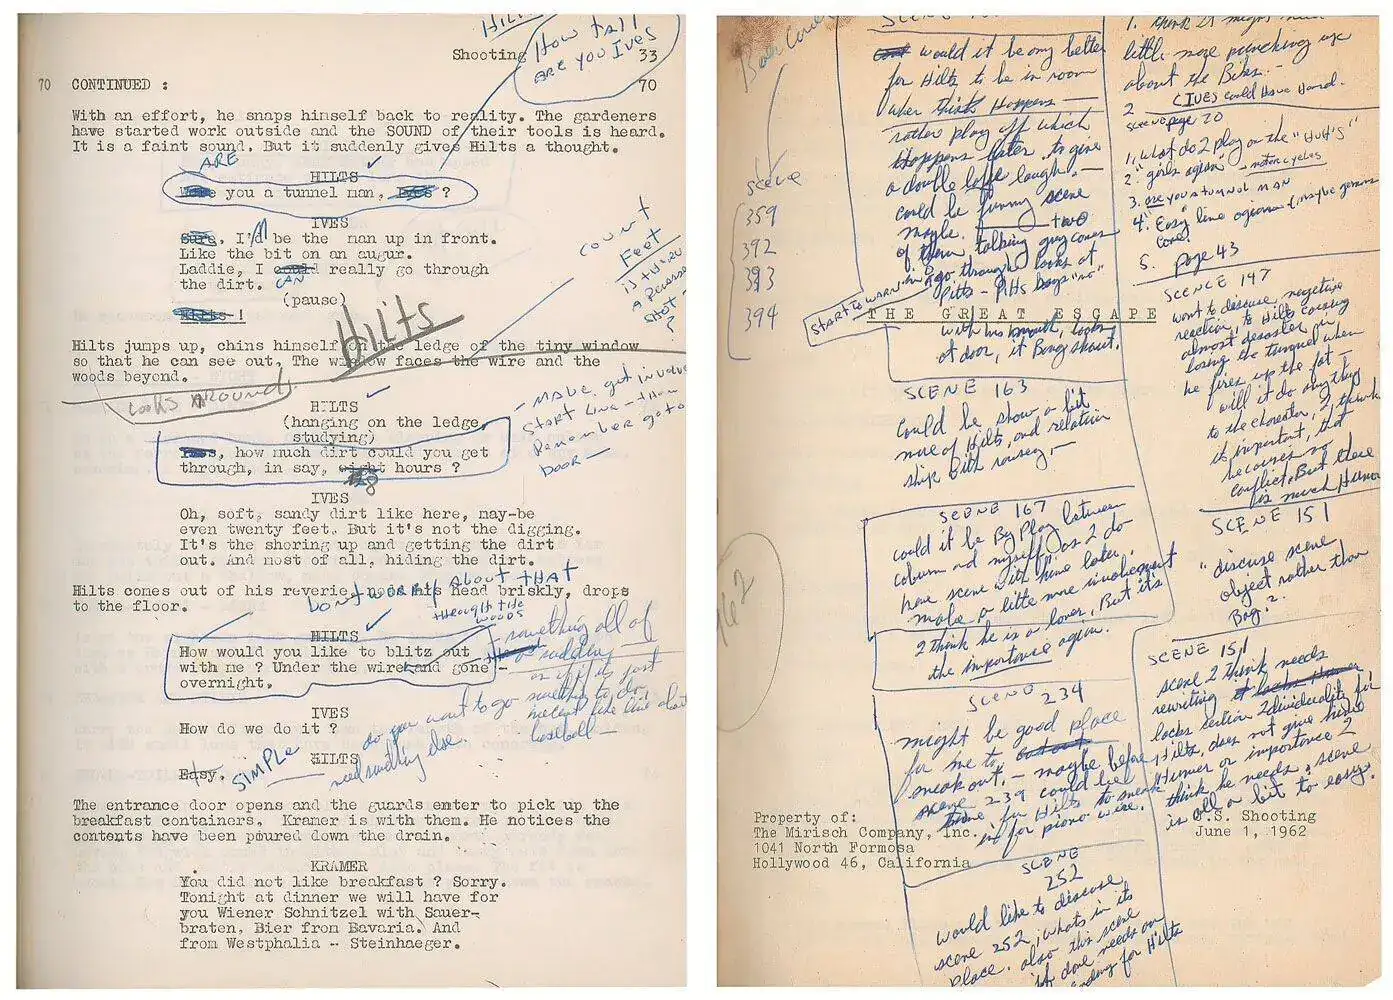 HILTS
How tall
ARE YOU IVES
Shooting
33
70 CONTINUED : 70
With an effort, he snaps himself back to reality. The gardeners
have started work outside and the SOUND of their tools is heard.
It is a faint sound. But it suddenly gives Hilts a thought.
ARE
HILTS
you a tunnel man, Ives ?
IVES
Sure, I'll be the man up in front.
Like the bit on an augur.
Laddie, I could really go through
CAN
the dirt.
(pause)
Hilts !
Hilts
COUNT
FEET
Hilts jumps up, chins himself on the ledge of the tiny window
so that he can see out, The window faces the wire and the
woods beyond.
Looks AROUND
HILTS
(hanging on the ledge,
studying)
, how much dirt could you get
through, in say, eight hours ?
8
START LINE - then
Remember go to
DOOR —
IVES
Oh, soft, sandy dirt like here, may-be
even twenty feet. But it's not the digging.
It's the shoring up and getting the dirt
out. And most of all, hiding the dirt.
DONT WORRY ABOUT THAT
Hilts comes out of his reverie, nods his head briskly, drops
to the floor.
through the
woods
HILTS
How would you like to blitz out
with me ? Under the wire and gone -
overnight.
something all of
a sudden —
as if it's just
something to do,
baseball —
IVES
How do we do it ?
do you want to go
HILTS
Easy.
SIMPLE
The entrance door opens and the guards enter to pick up the
breakfast containers. Kramer is with them. He notices the
contents have been poured down the drain.
KRAMER
You did not like breakfast ? Sorry.
Tonight at dinner we will have for
you Wiener Schnitzel with Sauer-
braten, Bier from Bavaria. And
from Westphalia -- Steinhaeger.
scene
359
392
393
394
would it be any better
for Hilts to be in room
when this Happens —
rather play off which
Happens later to give
a double laugh. —
could be funny scene
maybe. — two
of them talking guy comes
go through looks at
Pitts - Pitts says "no"
START TO WARN
THE GREAT ESCAPE
with his mouth, looks
at door, it Bangs shut.
SCENE 163
could be show a bit
more of Hilts, and relation
ship with
SCENE 167
could it be By Play between
coburn and myself, as I do
have scene with him later,
make a little more involvement
I think he is a loner, But it's
the importance again.
SCENE 234
might be good place
for me to
sneak out, — maybe before
scene 239 could be
time for Hilts to sneak
in for piano wire.
SCENE
252
would like to discuss
scene 252, whats in its
place. also this scene
if done needs an
ending for Hilts
1. think it might need
little more punching up
about the Bikes. —
2 (IVES could have Hand.
scene page 70
1. what do I play on the "HUH'S"
2. "girls again" - motorcycles
3. are you a tunnel man
4. "Easy" line again (maybe german
5. page 43
SCENCE 147
want to discuss negative
reaction, to Hilts causing
almost disaster, or
losing the tunnel when
he fires up the fat —
will it do anything
to the character, I think
it's important, that
because no
conflict, But there
is much Humor
SCENE 151
" discuss scene
object rather than
Bag.?
SCENE 151
scene I think needs
rewriting
lacks section Individuality for
Hilts, does not give him
Humor or importance I
think he needs, scene
is all a bit to easy.
Property of:
The Mirisch Company, Inc.
1041 North Formosa
Hollywood 46, California
U.S. Shooting
June 1, 1962